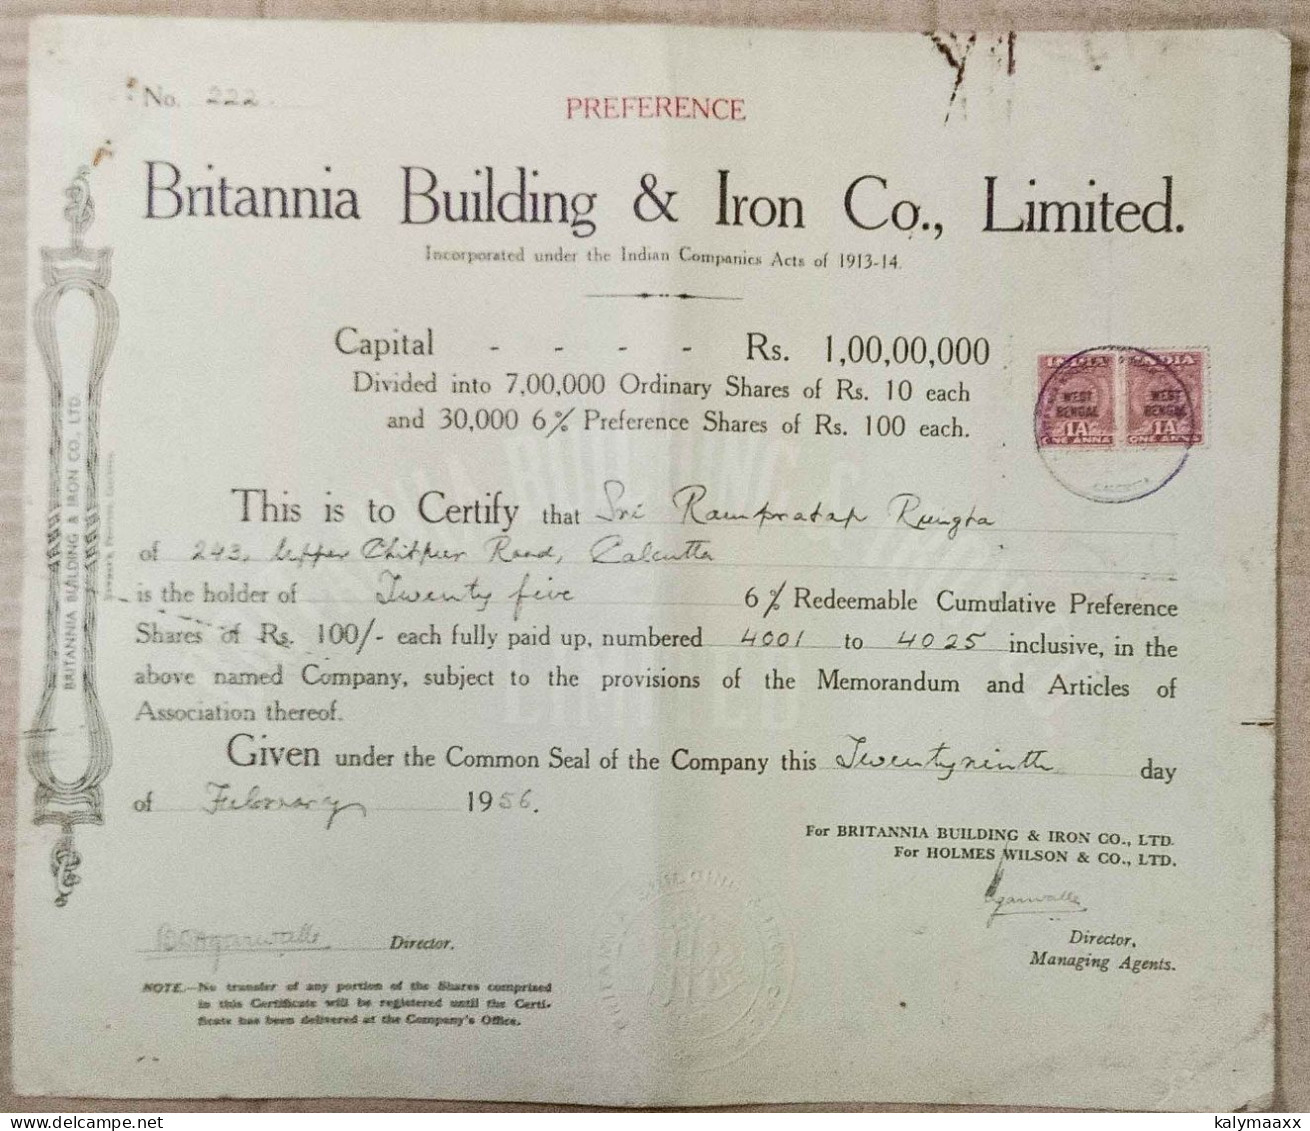 No. 222.
PREFERENCE
Britannia Building & Iron Co., Limited.
Incorporated under the Indian Companies Acts of 1913-14.
Capital - - - - Rs. 1,00,00,000
Divided into 7,00,000 Ordinary Shares of Rs. 10 each
and 30,000 6% Preference Shares of Rs. 100 each.
INDIA INDIA
WEST BENGAL WEST BENGAL
1A 1A
ONE ANNA ONE ANNA
This is to Certify that Sri Rampratap Rungta
of 243, Upper Chitpur Road, Calcutta
is the holder of Twenty five 6% Redeemable Cumulative Preference
Shares of Rs. 100/- each fully paid up, numbered 4001 to 4025 inclusive, in the
above named Company, subject to the provisions of the Memorandum and Articles of
Association thereof.
Given under the Common Seal of the Company this Twentyninth day
of February 1956.
For BRITANNIA BUILDING & IRON CO., LTD.
For HOLMES WILSON & CO., LTD.
Director.
Director,
Managing Agents.
NOTE.—No transfer of any portion of the Shares comprised
in this Certificate will be registered until the Certi-
ficate has been delivered at the Company's Office.
BRITANNIA BUILDING & IRON CO., LTD.
kalymaaxx